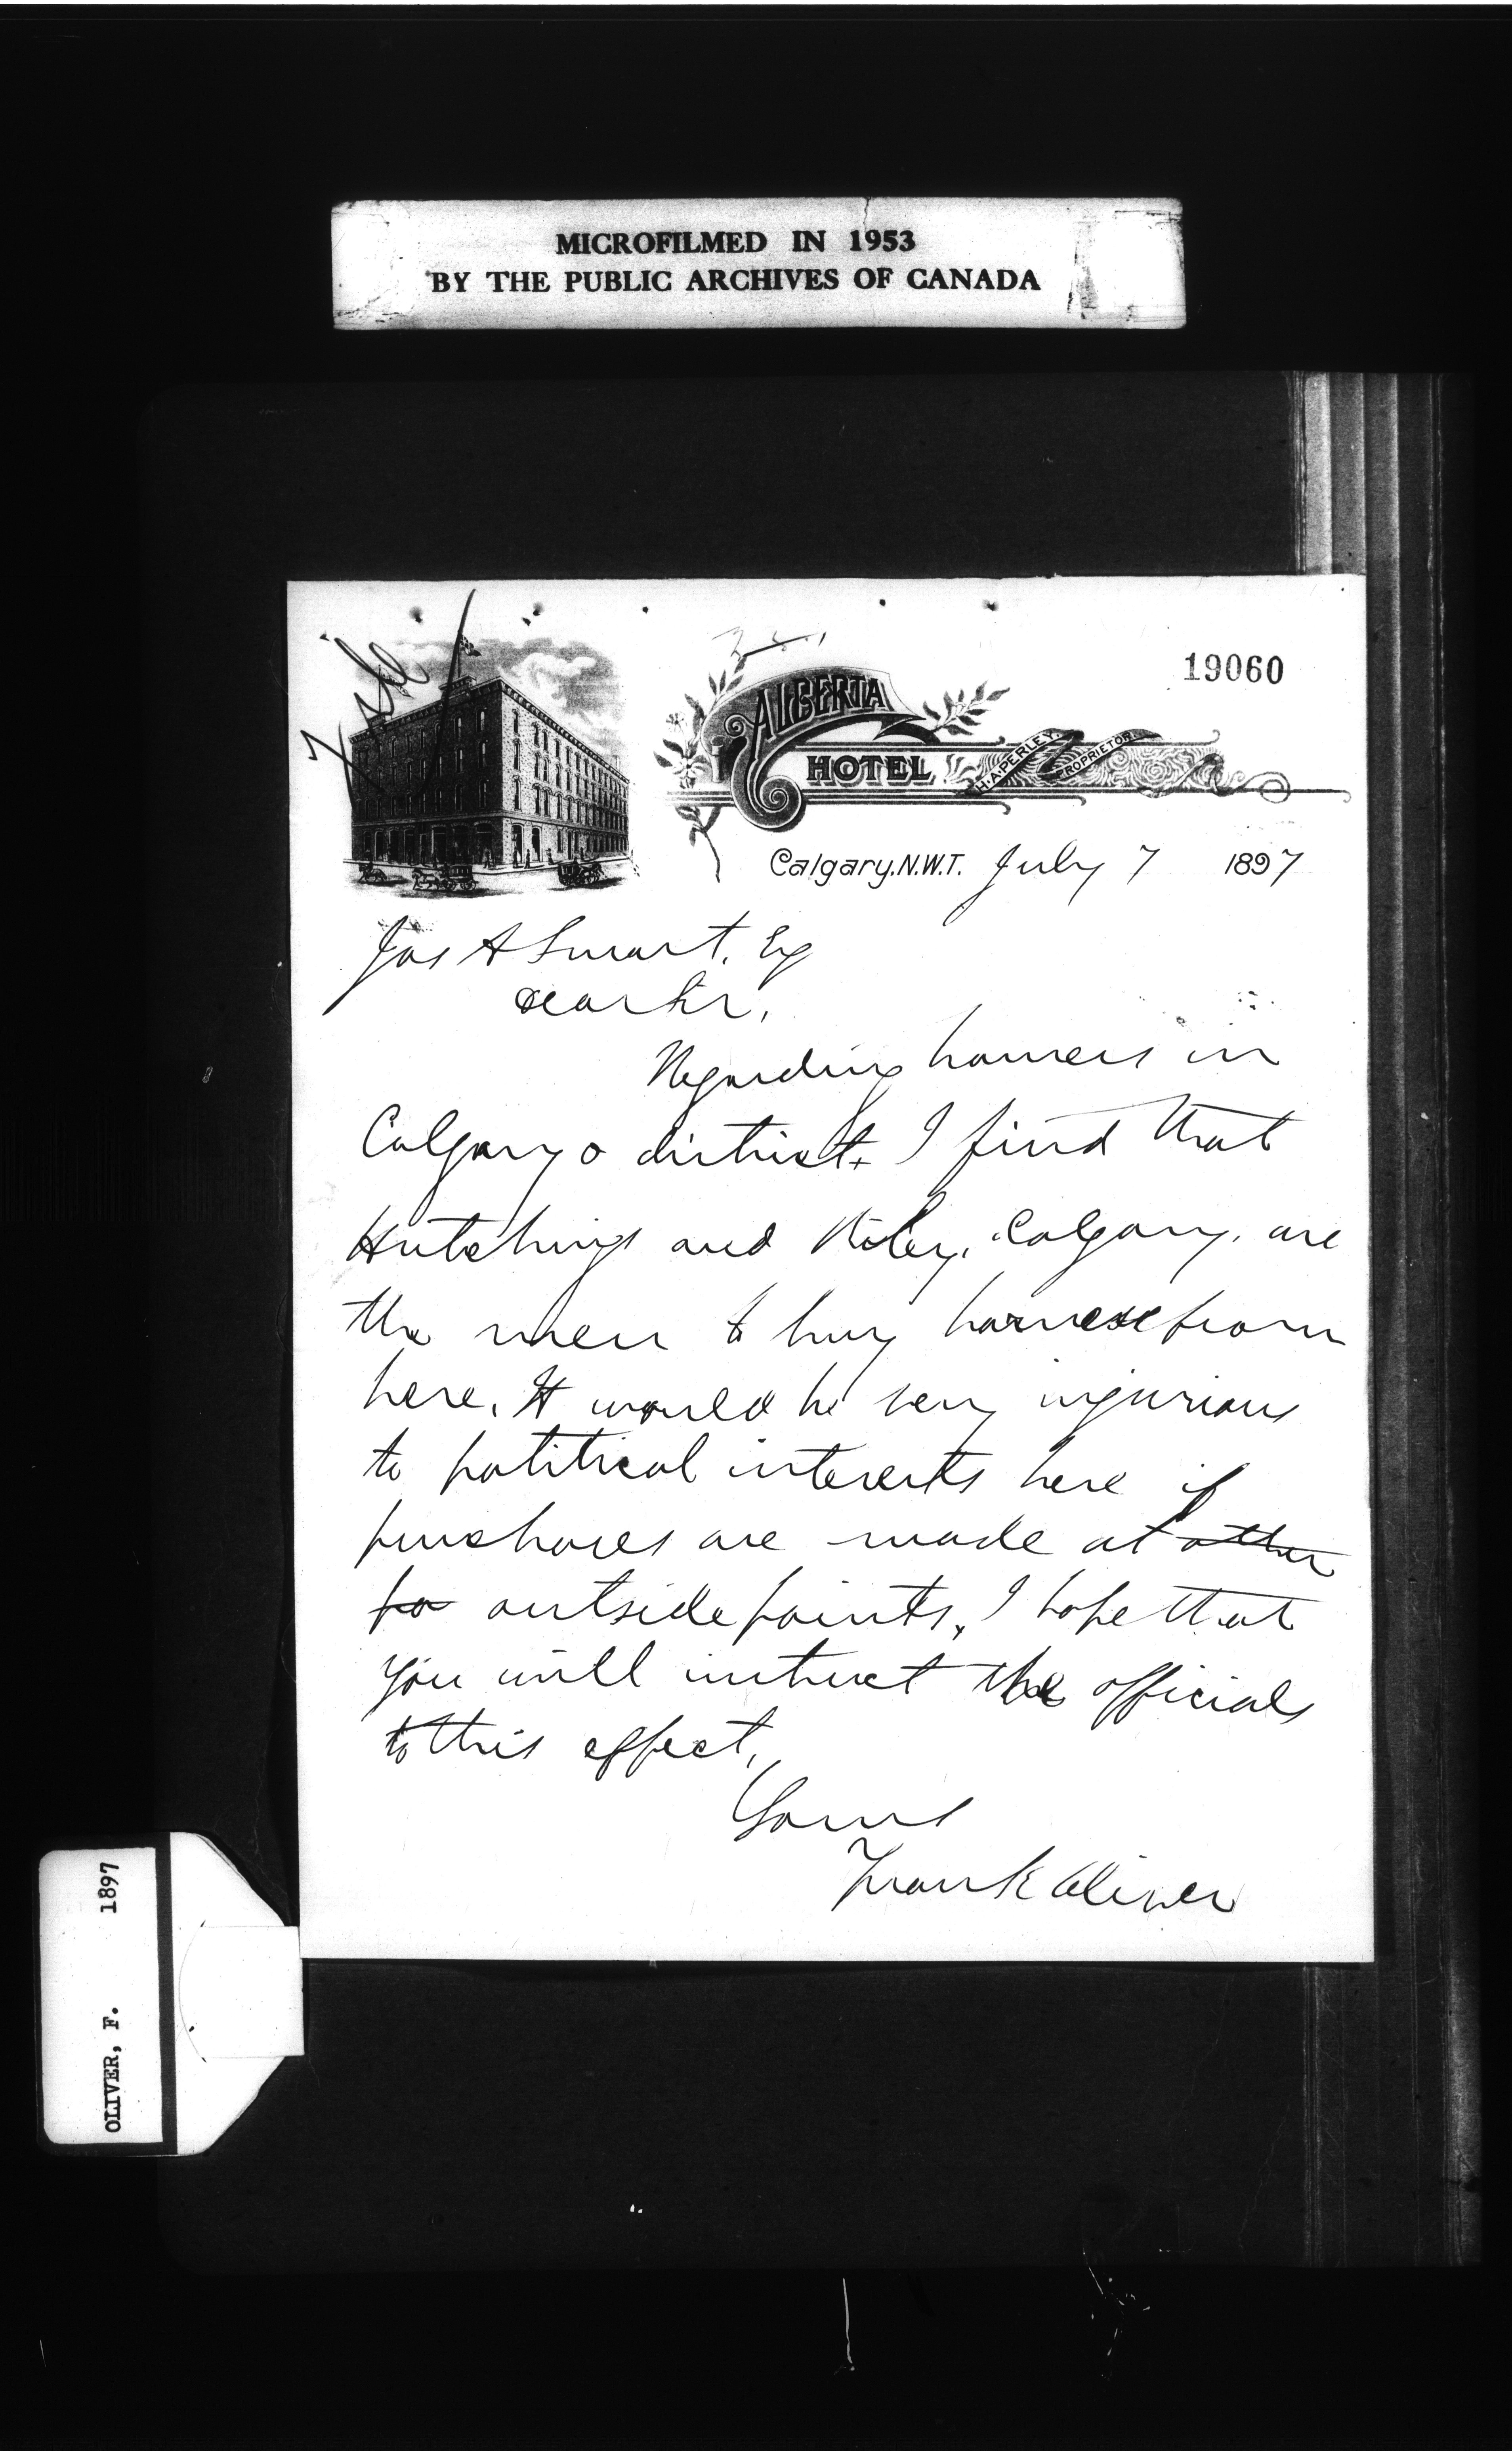 MICROFILMED IN 1953
BY THE PUBLIC ARCHIVES OF CANADA
File
19060
ALBERTA
HOTEL
H.A. PERLEY.
PROPRIETOR.
Calgary. N.W.T. July 7 1897
Jas A Smart, Esq
Dear Sir,
Regarding harness in
Calgary district. I find that
Hutchings and Riley, Calgary, are
the men to buy harness from
here. It would be very injurious
to political interests here if
purchases are made at other
po outside points. I hope that
you will instruct the officials
to this effect,
Yours
Frank Oliver
OLIVER, F. 1897